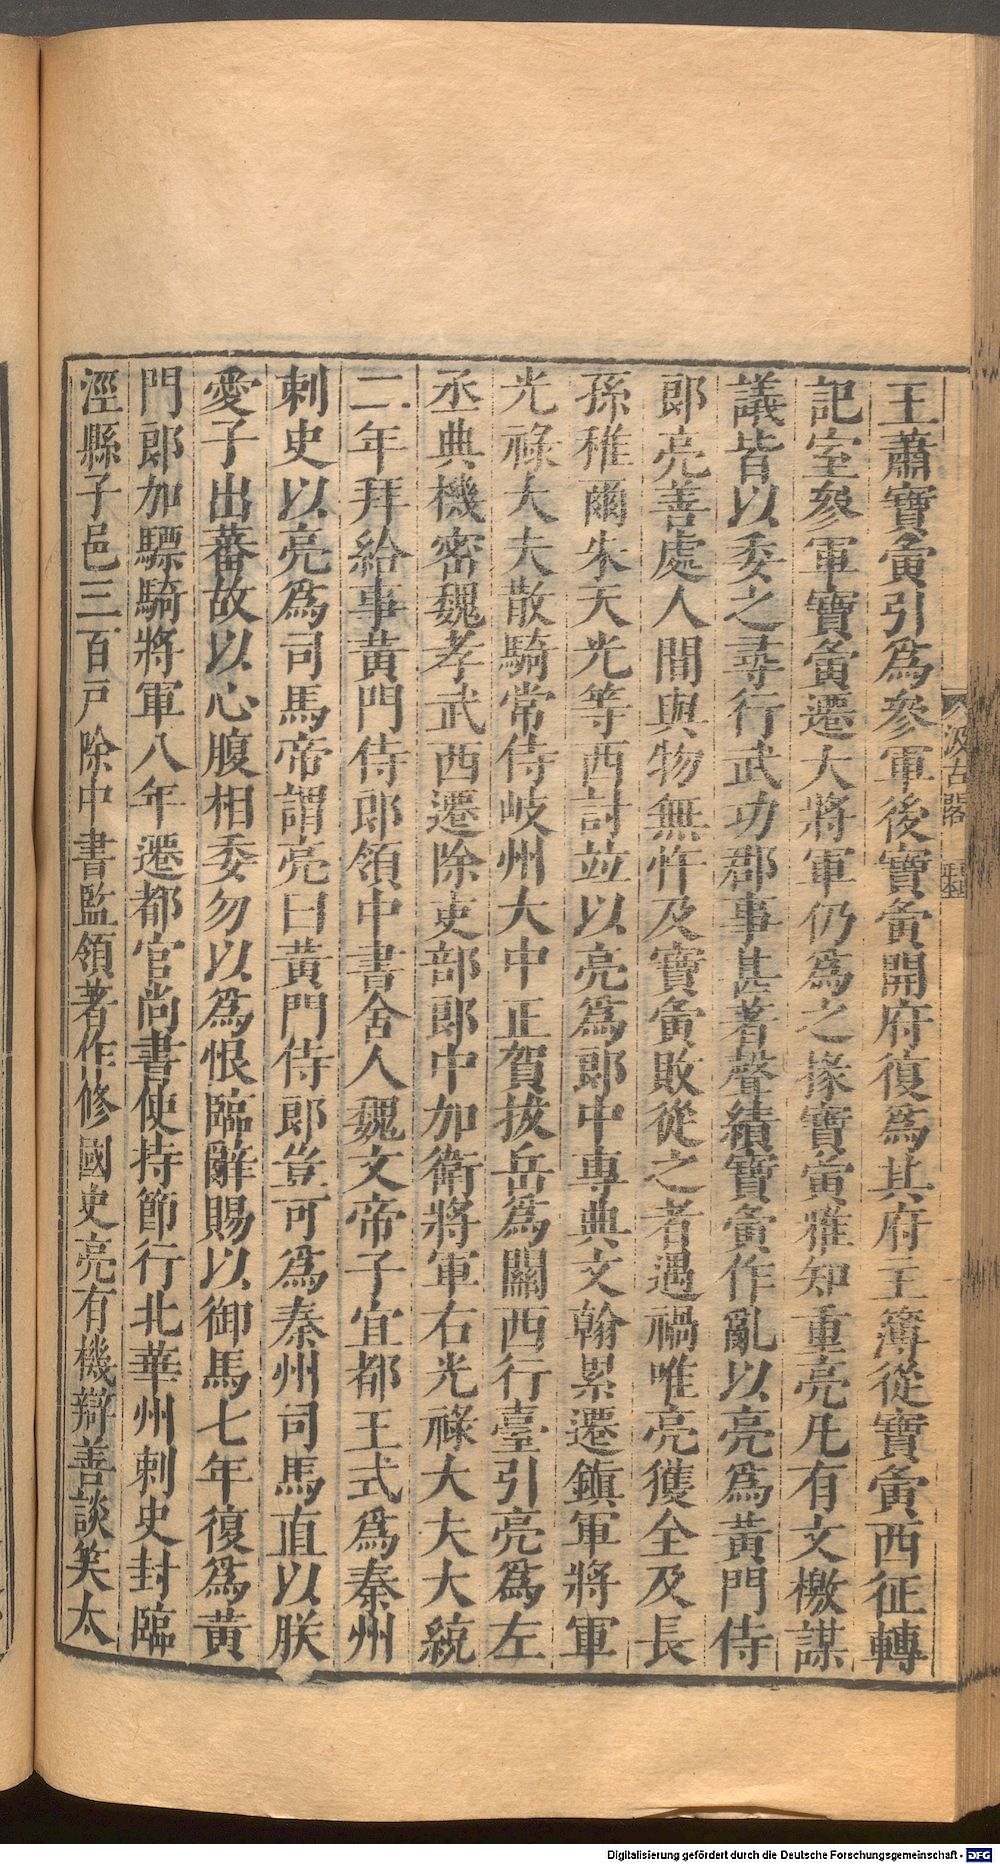 王蕭寶夤引爲參軍後寶夤開府復爲其府主簿從寶夤西征轉
記室參軍寶夤遷大將軍仍爲之掾寶夤雅知重亮凡有文檄謀
議皆以委之尋行武功郡事甚著聲績寶夤作亂以亮爲黃門侍
郎亮善處人間與物無忤及寶夤敗從之者遇禍唯亮獲全及長
孫稚爾朱天光等西討竝以亮爲郎中專典文翰累遷鎭軍將軍
光祿大夫散騎常侍岐州大中正賀拔岳爲關西行臺引亮爲左
丞典機密魏孝武西遷除吏部郎中加衛將軍右光祿大夫大統
二年拜給事黃門侍郎領中書舍人魏文帝子宜都王式爲秦州
刺史以亮爲司馬帝謂亮曰黃門侍郎豈可爲秦州司馬直以朕
愛子出蕃故以心腹相委勿以爲恨臨辭賜以御馬七年復爲黃
門郎加驃騎將軍八年遷都官尚書使持節行北華州刺史封臨
涇縣子邑三百戸除中書監領著作修國史亮有機辯善談笑太
汲古閣
Digitalisierung gefördert durch die Deutsche Forschungsgemeinschaft - DFG